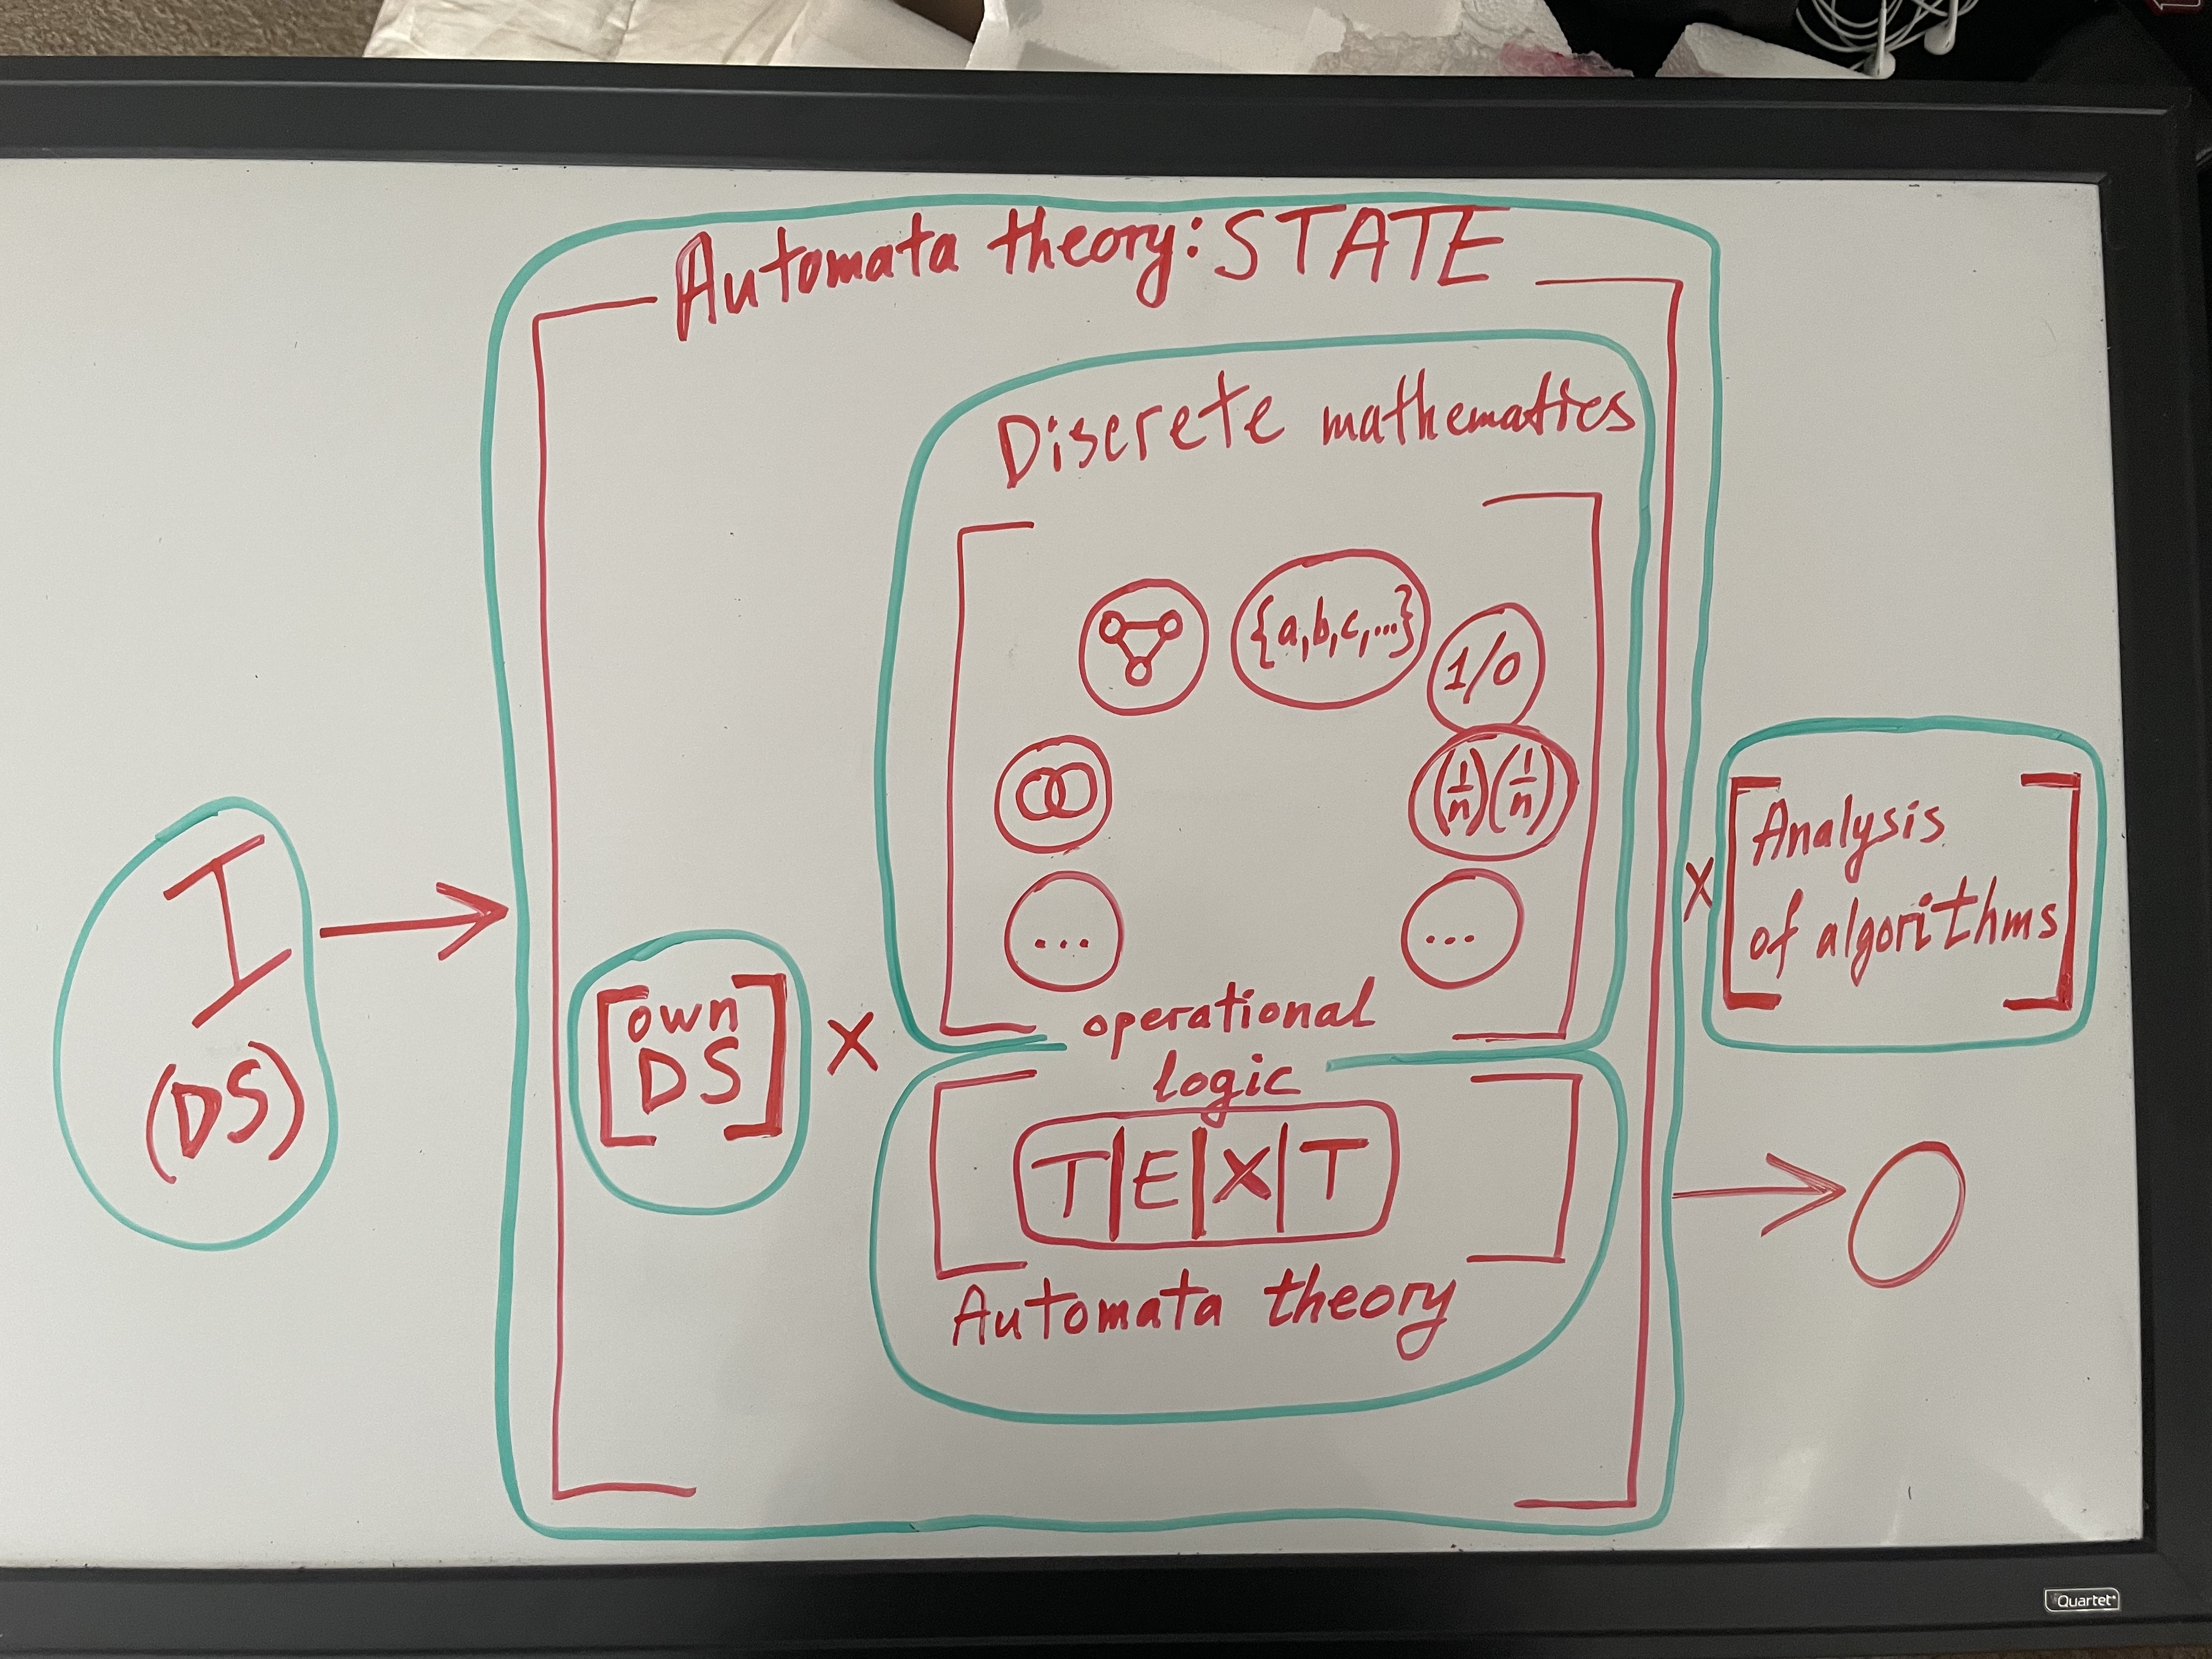 Automata theory: STATE
Discrete mathematics
{a,b,c,...}
1/0
(1/n)(1/n)
...
...
I
(DS)
own
DS
X
operational
logic
T|E|X|T
Automata theory
X
Analysis
of algorithms
O
Quartet